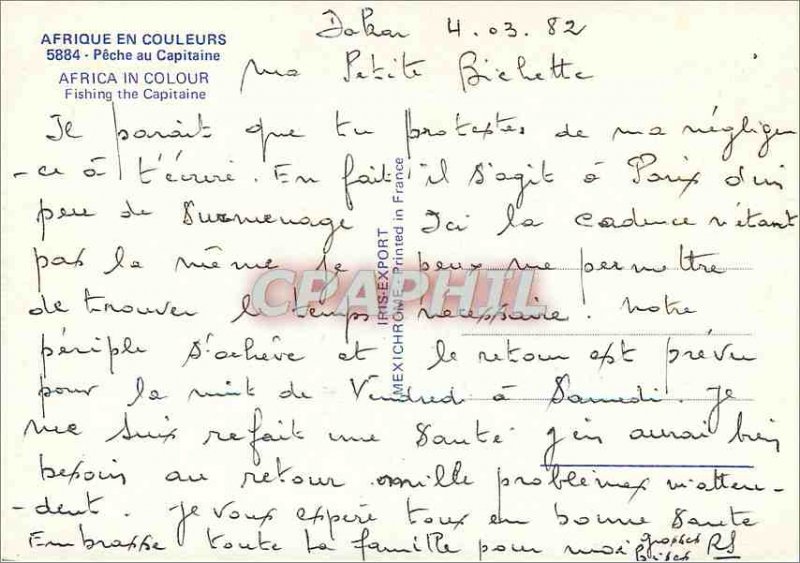 AFRIQUE EN COULEURS
5884 - Pêche au Capitaine
AFRICA IN COLOUR
Fishing the Capitaine
Dakar 4.03.82
ma Petite Bichette
Il parait que tu protestes de ma négligen
-ce à t'écrire. En fait il s'agit à Paris d'un
peu de Surmenage Ici la cadence n'étant
pas la même je peux me permettre
de trouver le temps nécessaire. Notre
périple s'achève et le retour est prévu
pour la nuit de Vendred à Samedi. Je
me suis refait une santé j'en aurai bien
besoin au retour mille problèmes m'atten-
-dent. Je vous espère tous en bonne santé
Embrasse toute la famille pour moi grosses
bises RS
IRIS-EXPORT
MEXICHROME - Printed in France
CPAPHIL